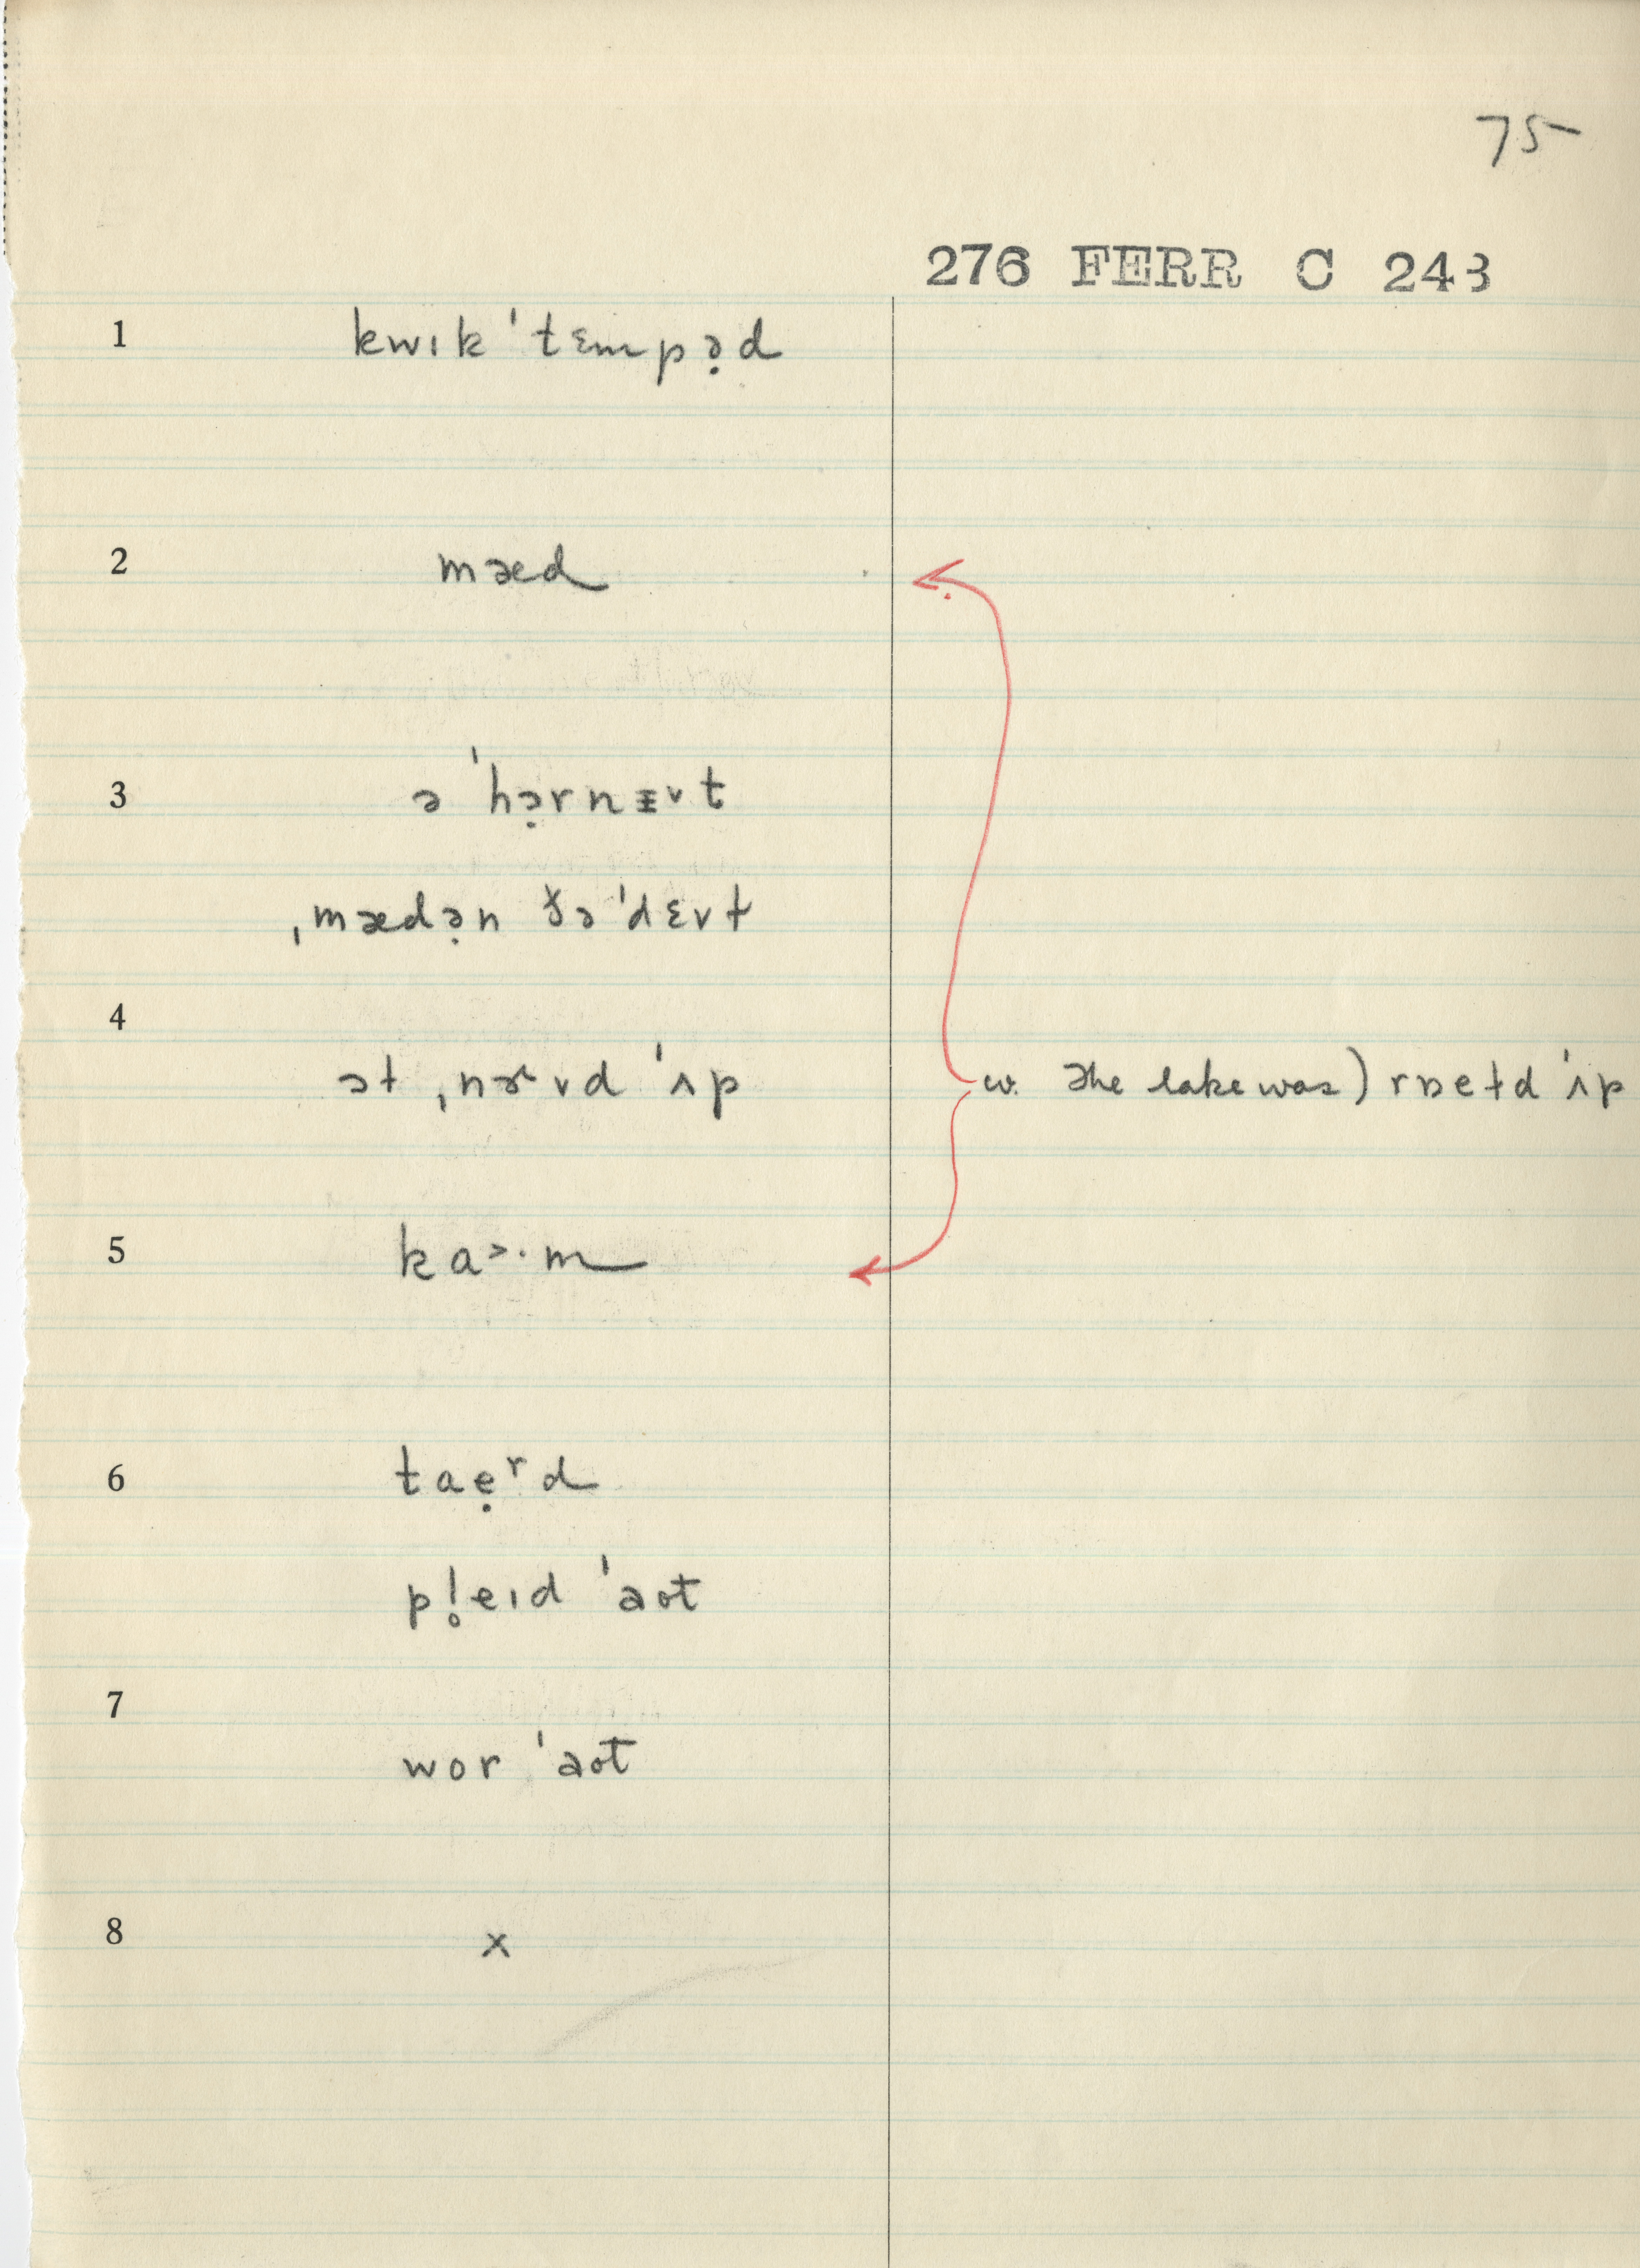 75
276 FERR C 243
1 kwɪk ˈtɛmpə̣d
2 mæd
3 ə ˈhə̣rnɪ˅t
ˌmædə̣n ðə ˈdɛ˅ɫ
4
əɫ ˌnɚ˅d ˈʌp
w. The lake was) rɒeɫd ˈʌp
5 ka˃·m
6 taẹʳd
pl̥eɪd ˈaʊt
7
wor ˈaʊt
8 x